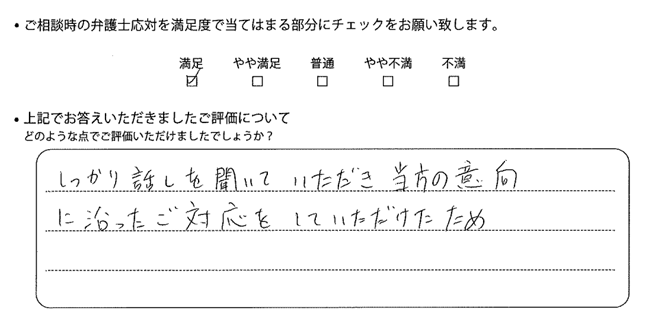 • ご相談時の弁護士応対を満足度で当てはまる部分にチェックをお願い致します。
満足 やや満足 普通 やや不満 不満
☑ □ □ □ □
• 上記でお答えいただきましたご評価について
どのような点でご評価いただけましたでしょうか？
しっかり話しを聞いていただき当方の意向
に沿ったご対応をしていただけたため